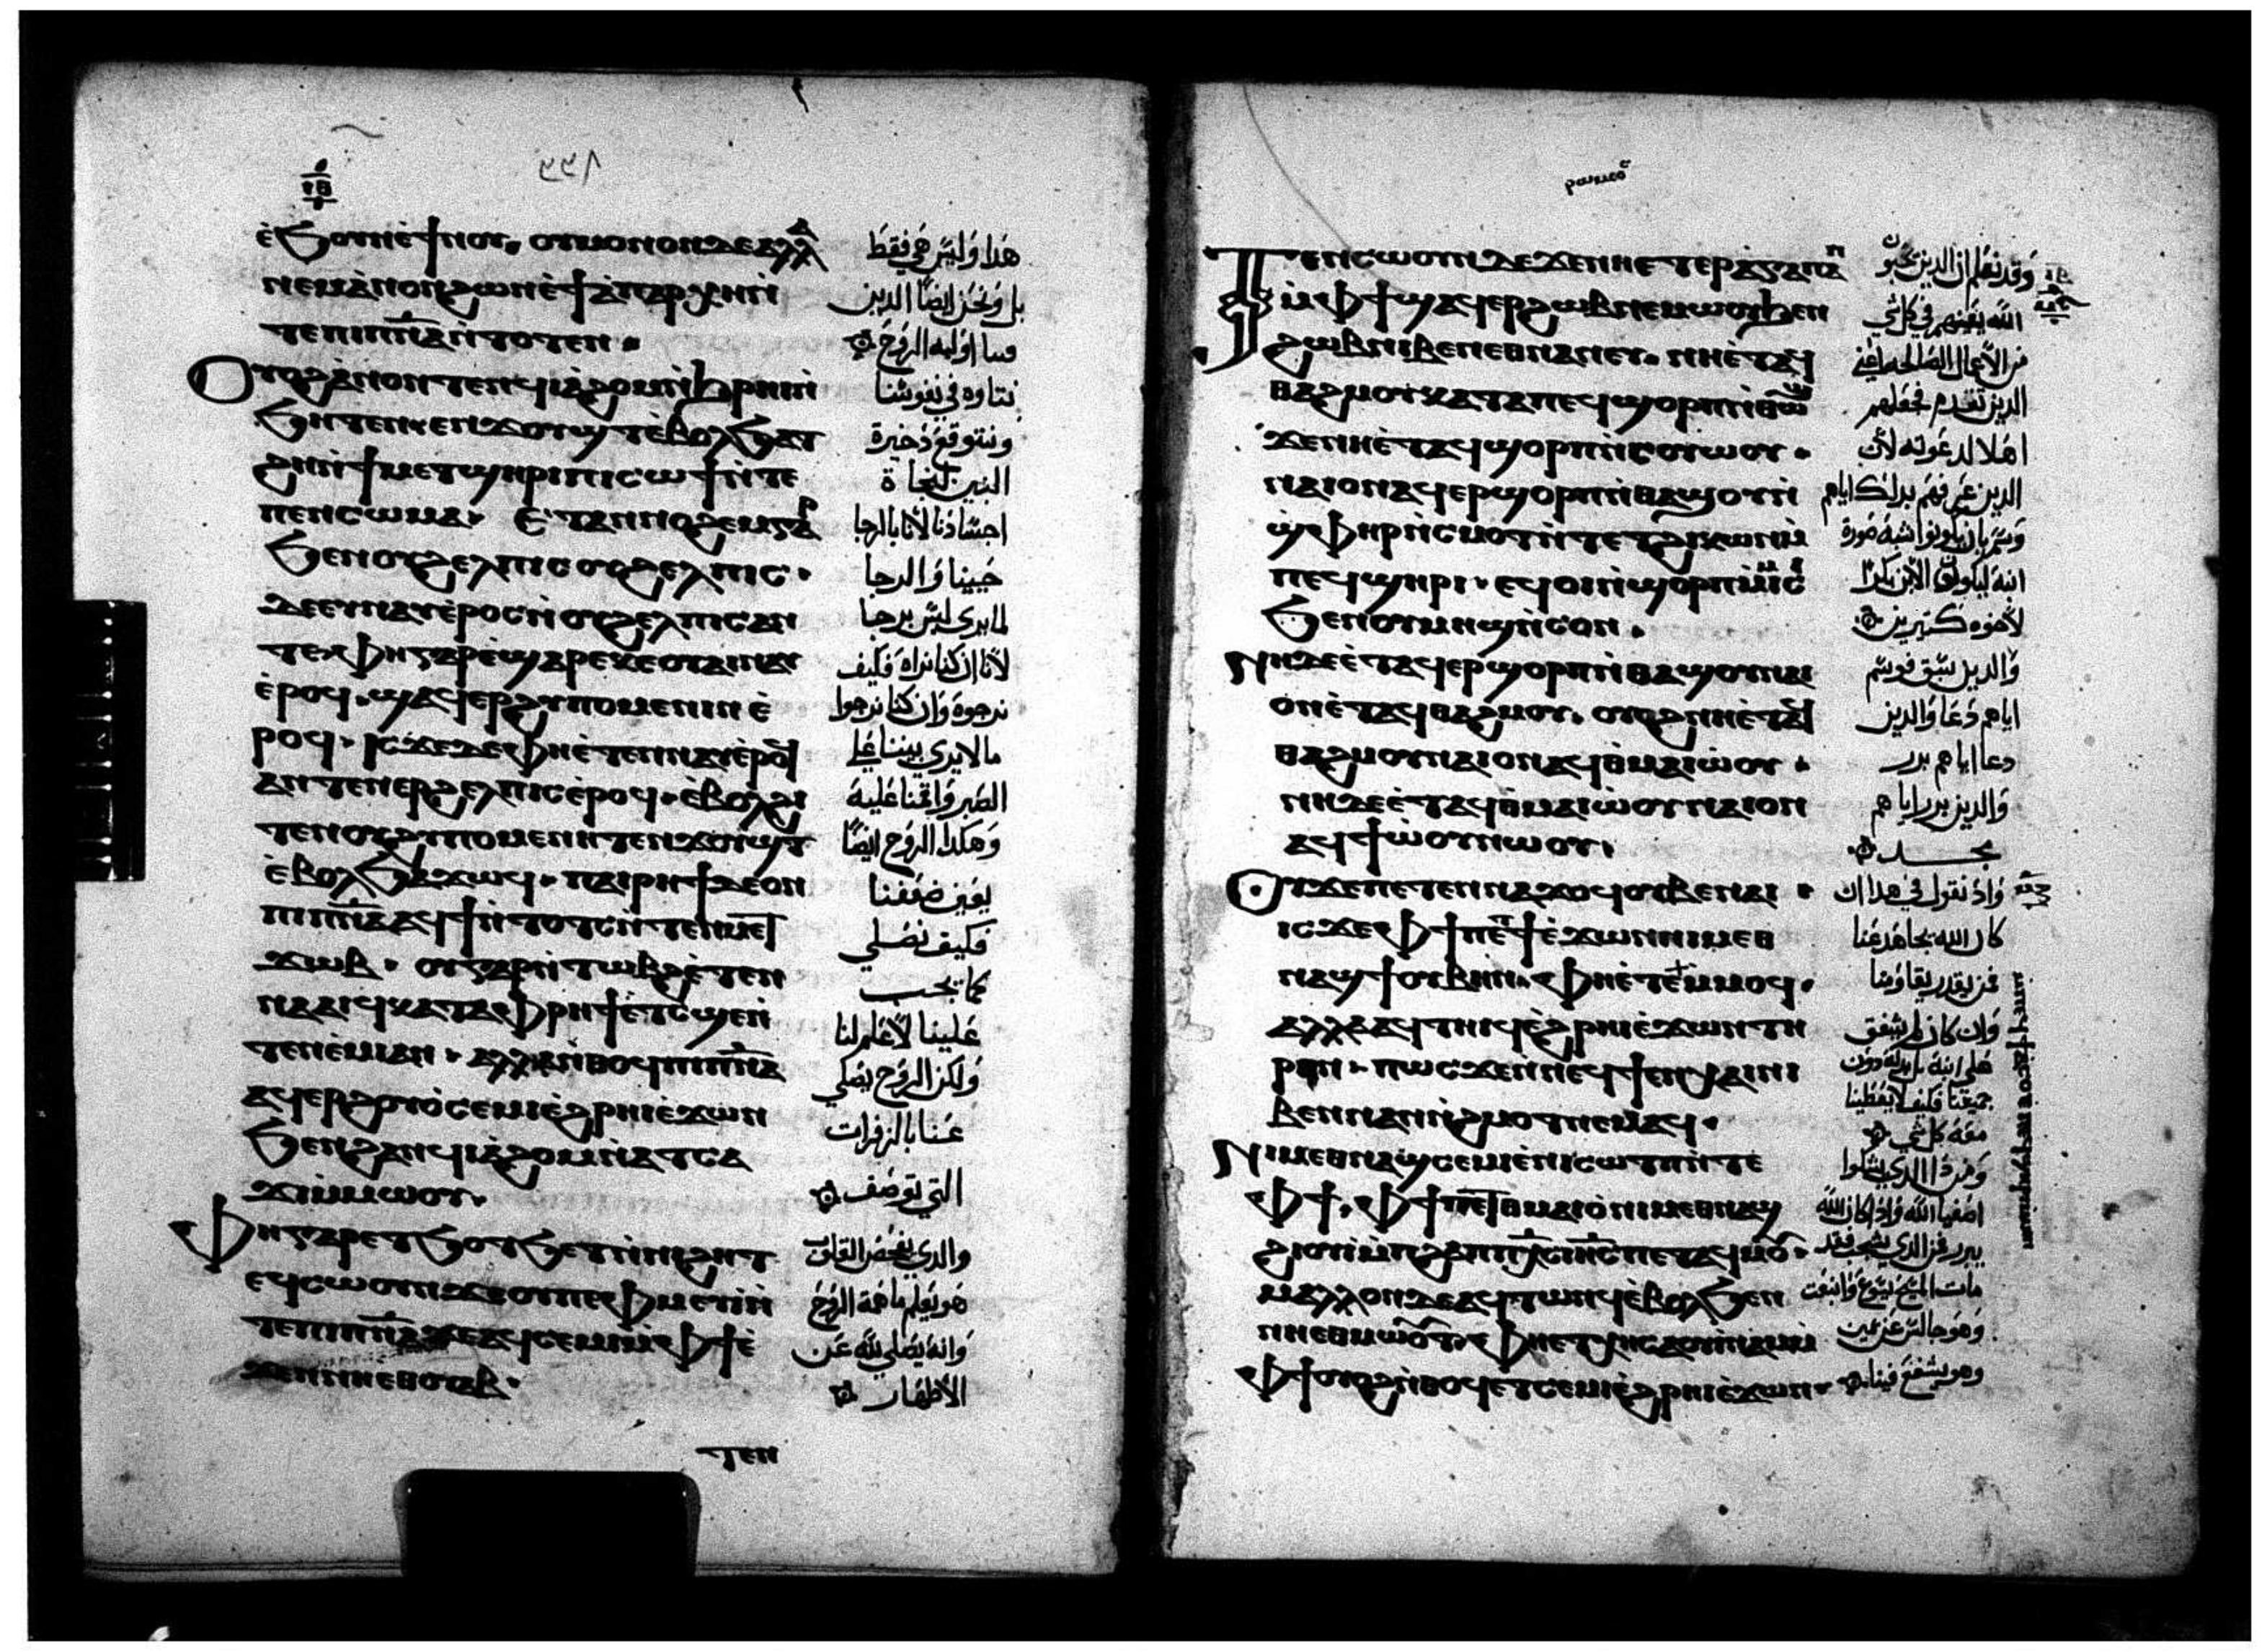 ⲉ̀ϧⲟⲩⲛⲉ̀ϯⲛⲟⲩ. ⲟⲩⲙⲟⲛⲟⲛⲇⲉⲁⲗⲗⲁ
ⲛⲉⲙⲁ̀ⲛⲟⲛϩⲱⲛⲉ̀ϯⲁ̀ⲡⲁⲣⲭⲏⲛ̀
ⲧⲉⲡⲓⲡⲛ̅ⲁⲛ̀ⲧⲟⲧⲉⲛ.
ⲟⲩⲟϩⲁ̀ⲛⲟⲛⲧⲉⲛϥⲓⲁ̀ϩⲟⲙⲛ̀ϧⲣⲏⲓⲛ̀
ϧⲏⲧⲉⲛ. ⲉⲛϫⲟⲩϣⲧⲉ̀ⲃⲟⲗϧⲁⲧ
ϩⲏⲛ̀ϯⲙⲉⲧϣⲏⲣⲓⲡⲓⲥⲱϯⲛ̀ⲧⲉ
ⲡⲉⲛⲥⲱⲙⲁ. ⲉ̀ⲧⲁⲛⲛⲟϩⲉⲙⲅⲁⲣ
ϧⲉⲛⲟⲩϩⲉⲗⲡⲓⲥⲟⲩϩⲉⲗⲡⲓⲥ.
ⲇⲉⲉⲩⲛⲁⲩⲉ̀ⲣⲟⲥⲛ̀ⲟⲩϩⲉⲗⲡⲓⲥⲁⲛ
ⲧⲉ. ⲫⲏⲅⲁⲣⲉ̀ϣⲁⲣⲉⲕⲉⲟⲩⲁⲓⲛⲁⲩ
ⲉ̀ⲣⲟϥ. ϣⲁϥⲉⲣϩⲩⲡⲟⲙⲉⲛⲓⲛⲉ̀
ⲣⲟϥ. ⲓⲥϫⲉⲇⲉⲫⲏⲉ̀ⲧⲉⲛⲛⲁⲩⲉ̀ⲣⲟϥ
ⲁⲛⲧⲉⲛⲉⲣϩⲉⲗⲡⲓⲥⲉ̀ⲣⲟϥ. ⲉ̀ⲃⲟⲗϩⲓ
ⲧⲉⲛⲟⲩϩⲩⲡⲟⲙⲉⲛⲏⲧⲉⲛϫⲟⲩϣⲧ
ⲉ̀ⲃⲟⲗϧⲁϫⲱϥ. ⲡⲁⲓⲣⲏϯⲇⲉⲟⲛ
ⲡⲓⲡⲛ̅ⲁⲁϥϯⲛ̀ⲧⲟⲧⲥⲛ̀ⲧⲉⲛⲙⲉⲧ
ϫⲱⲃ. ⲟⲩⲅⲁⲣⲛ̀ⲧⲱⲃϩⲉ̀ⲧⲉⲛ
ⲛⲁⲁⲓϥⲕⲁⲧⲁⲫⲣⲏϯⲉ̀ⲧⲥϣⲉⲛ̀
ⲧⲉⲛⲉ̀ⲙⲓⲁⲛ. ⲁⲗⲗⲁⲛ̀ⲑⲟϥⲡⲓⲡⲛ̅ⲁ
ⲁϥⲉⲣϩⲟⲩⲟ̀ⲥⲉⲙⲓⲉ̀ϩⲣⲏⲓⲉ̀ϫⲱⲛ
ϧⲉⲛϩⲁⲛϥⲓⲁ̀ϩⲟⲙⲛ̀ⲁⲧⲥⲁ
ϫⲓⲙ̀ⲙⲱⲟⲩ.
ⲫⲏⲅⲁⲣⲉⲧϧⲟⲧϧⲉⲧⲛ̀ⲛⲓϩⲏⲧ
ϥⲥⲱⲟⲩⲛϫⲉⲟⲩⲡⲉⲫⲙⲉⲩⲓ̀ⲛ̀
ⲧⲉⲡⲓⲡⲛ̅ⲁϫⲉⲁϥⲥⲉⲙⲓⲙ̀ⲫϯⲉ̀
ϫⲉⲛⲛⲏⲉⲑⲟⲩⲁⲃ.
ⲧⲉⲛ
هذا وليس هي فقط
بل ونحن ايضا الذين
فينا اوليه الروح
نتاوه في نفوسنا
ونتوقع ذخيرة
البنين لنجاة
اجسادنا لاننا بالرجا
حيينا والرجا
لما يرى ليس برجا
لاننا ان كنا نراه فكيف
نرجوه وان كنا نرجوا
ما لا يرى
الصبر واقمنا عليه
وهكذا الروح ايضا
يعين ضعفنا
فكيف نصلي
كما يجب
علينا لا علم لنا
ولكن الروح يصلي
عنا بالزفرات
التي توصف
والذي يفحص القلوب
هو يعلم ما همة الروح
وانه يصلي لله عن
الاطهار
ⲧⲉⲛⲥⲱⲟⲩⲛⲇⲉϫⲉⲛⲛⲏⲉⲧⲉⲣⲁ̀ⲅⲁⲡⲁⲛ
ⲙ̀ⲫϯϣⲁϥⲉⲣϩⲱⲃⲛⲉⲙⲱⲟⲩϧⲉⲛ
ϩⲱⲃⲛⲓⲃⲉⲛⲉⲑⲛⲁⲛⲉⲩ. ⲛⲏⲉ̀ⲧⲁϥ
ⲑⲁϩⲙⲟⲩⲕⲁⲧⲁⲡⲉϥϣⲟⲣⲡⲛ̀ⲑⲱϣ
ϫⲉⲛⲏⲉ̀ⲧⲁϥϣⲟⲣⲡⲛ̀ⲥⲟⲩⲱⲟⲩ.
ⲛⲁⲓⲟⲛⲁϥⲉⲣϣⲟⲣⲡⲛ̀ⲑⲁϣⲟⲩⲛ̀
ϣ̀ⲫⲏⲣⲛ̀ⲥⲙⲟⲧⲛ̀ⲧⲉⲧϩⲓⲕⲱⲛⲙ̀
ⲡⲉϥϣⲏⲣⲓ. ⲉϥⲟⲓⲛ̀ϣⲟⲣⲡⲙ̀ⲙⲓⲥⲓ
ϧⲉⲛⲟⲩⲙⲏϣⲛ̀ⲥⲟⲛ.
ⲛⲏⲇⲉⲉ̀ⲧⲁϥⲉⲣϣⲟⲣⲡⲛ̀ⲑⲁϣⲟⲩⲛⲁⲓ
ⲟⲛⲉ̀ⲧⲁϥⲑⲁϩⲙⲟⲩ. ⲟⲩⲟϩⲛⲏⲉ̀ⲧⲁϥ
ⲑⲁϩⲙⲟⲩⲛⲁⲓⲟⲛⲁϥⲑⲙⲁⲓⲱ̀ⲟⲩ.
ⲛⲏⲇⲉⲉ̀ⲧⲁϥⲑⲙⲁⲓⲱ̀ⲟⲩⲛⲁⲓⲟⲛ
ⲁϥϯⲱ̀ⲟⲩⲛⲱⲟⲩ.
ⲟⲩϫⲉⲡⲉⲧⲉⲛⲛⲁϫⲟϥⲟⲩⲃⲉⲛⲁⲓ.
ⲓⲥϫⲉⲫϯⲡⲉⲧϯⲉ̀ϫⲱⲛⲛⲓⲙⲉⲑ
ⲛⲁϣϯⲟⲩⲃⲏⲛ. ⲫⲏⲉ̀ⲧⲉⲙ̀ⲙⲟϥ.
ⲁⲗⲗⲁⲁϥⲧⲏⲓϥⲉ̀ϩⲣⲏⲓⲉ̀ϫⲱⲛⲧⲏ
ⲣⲉⲛ. ⲡⲱⲥϫⲉⲛ̀ⲛⲉϥϯⲉⲛⲭⲁⲓⲛⲓ
ⲃⲉⲛⲛⲁⲛⲛ̀ϩⲙⲟⲧⲛⲉⲙⲁϥ.
ⲛⲓⲙⲉⲑⲛⲁϣⲥⲉⲙⲓⲉ̀ⲛⲓⲥⲱⲧⲡⲛ̀ⲧⲉ
ⲫϯ. ⲫϯⲡⲉⲧⲑⲙⲁⲓⲟ̀ⲛⲓⲙⲉⲑⲛⲁϣ
ϩⲓⲟⲩⲓ̀ⲙ̀ⲡϩⲁⲡⲡⲭ̅ⲥⲓⲏ̅ⲥⲡⲉⲧⲁϥⲙⲟⲩ.
ⲙⲁⲗⲗⲟⲛⲇⲉⲁϥⲧⲱⲛϥⲉ̀ⲃⲟⲗϧⲉⲛ
ⲛⲏⲉⲑⲙⲱⲟⲩⲧ. ⲫⲏⲉⲧⲭⲏⲥⲁⲟⲩⲓ̀ⲛⲁⲙⲙ̀
ⲫϯⲟⲩⲟϩⲛ̀ⲑⲟϥⲉⲧⲥⲉⲙⲓⲉ̀ϩⲣⲏⲓⲉ̀ϫⲱⲛ.
وقد نعلم ان الذين يحبون
الله يعينهم في كل شي
من الاعمال الصالحه
الذين تقدم فجعلهم
اهلا لدعوته لان
الذين عرفهم بذلك اياهم
وسم بان يكونوا شبه صورة
ابنه ليكون الابن بكرا
لاخوه كثيرين
والذين سبق فوسم
اياهم دعا والذين
دعا اياهم برر
والذين برر اياهم
مجد
واذ نقول في هذا ان
كان الله يجاهد عنا
فمن يقدر يقاومنا
وان كان لم يشفق
على ابنه بل بذله دون
جميعنا فكيف لا يعطينا
معه كل شي
ومن ذا الذي يشكوا
اصفيا الله واذا كان الله
يبرر فمن الذي يشجب فقد
مات المسيح يسوع وانبعث
وهو جالس عن يمين
وهو يشفع فينا